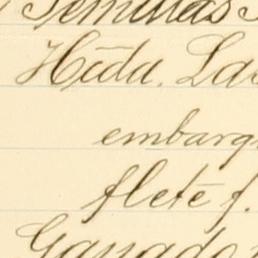 Semillas
Hãda. La
embarg
flete f.
Ganado